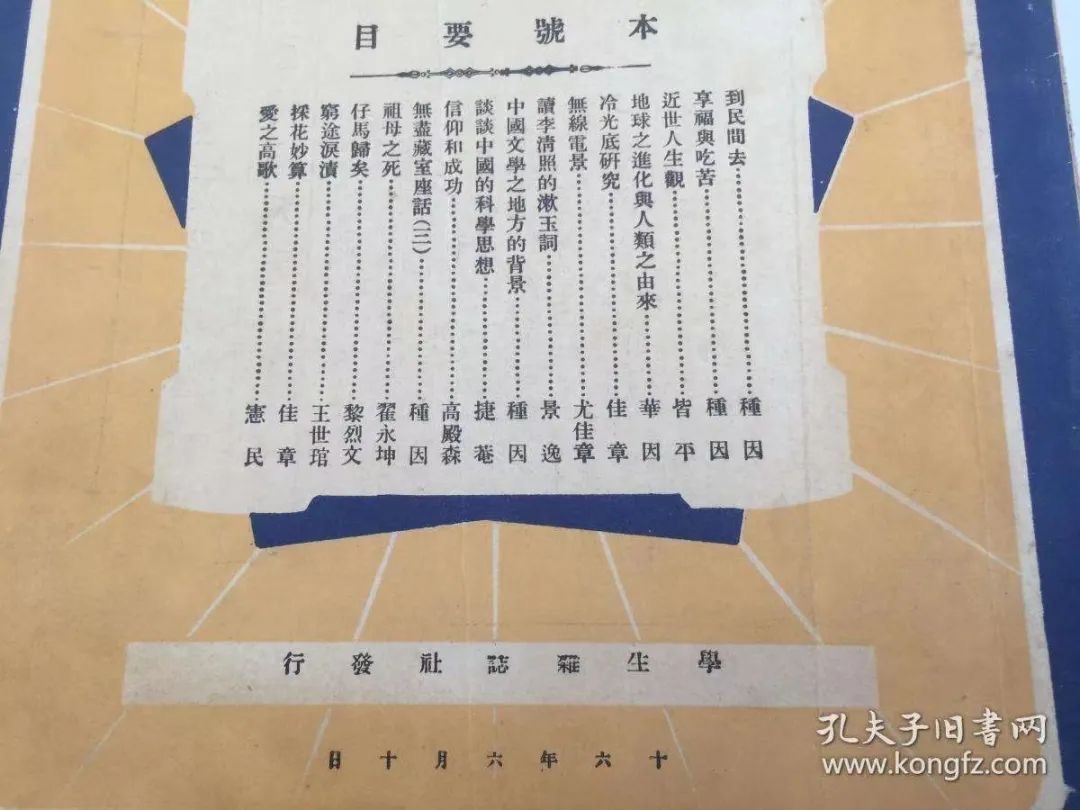 本號要目
到民間去……種因
享福與吃苦……種因
近世人生觀……皆平
地球之進化與人類之由來……華因
冷光底研究……佳章
無線電景……尤佳章
讀李清照的漱玉詞……景逸
中國文學之地方的背景……種因
談談中國的科學思想……捷菴
信仰和成功……高殿森
無盡藏室座話(三)……種因
祖母之死……翟永坤
仔馬歸矣……黎烈文
窮途淚漬……王世琯
採花妙算……佳章
愛之高歌……憲民
學生雜誌社發行
十六年六月十日
孔夫子旧书网
www.kongfz.com